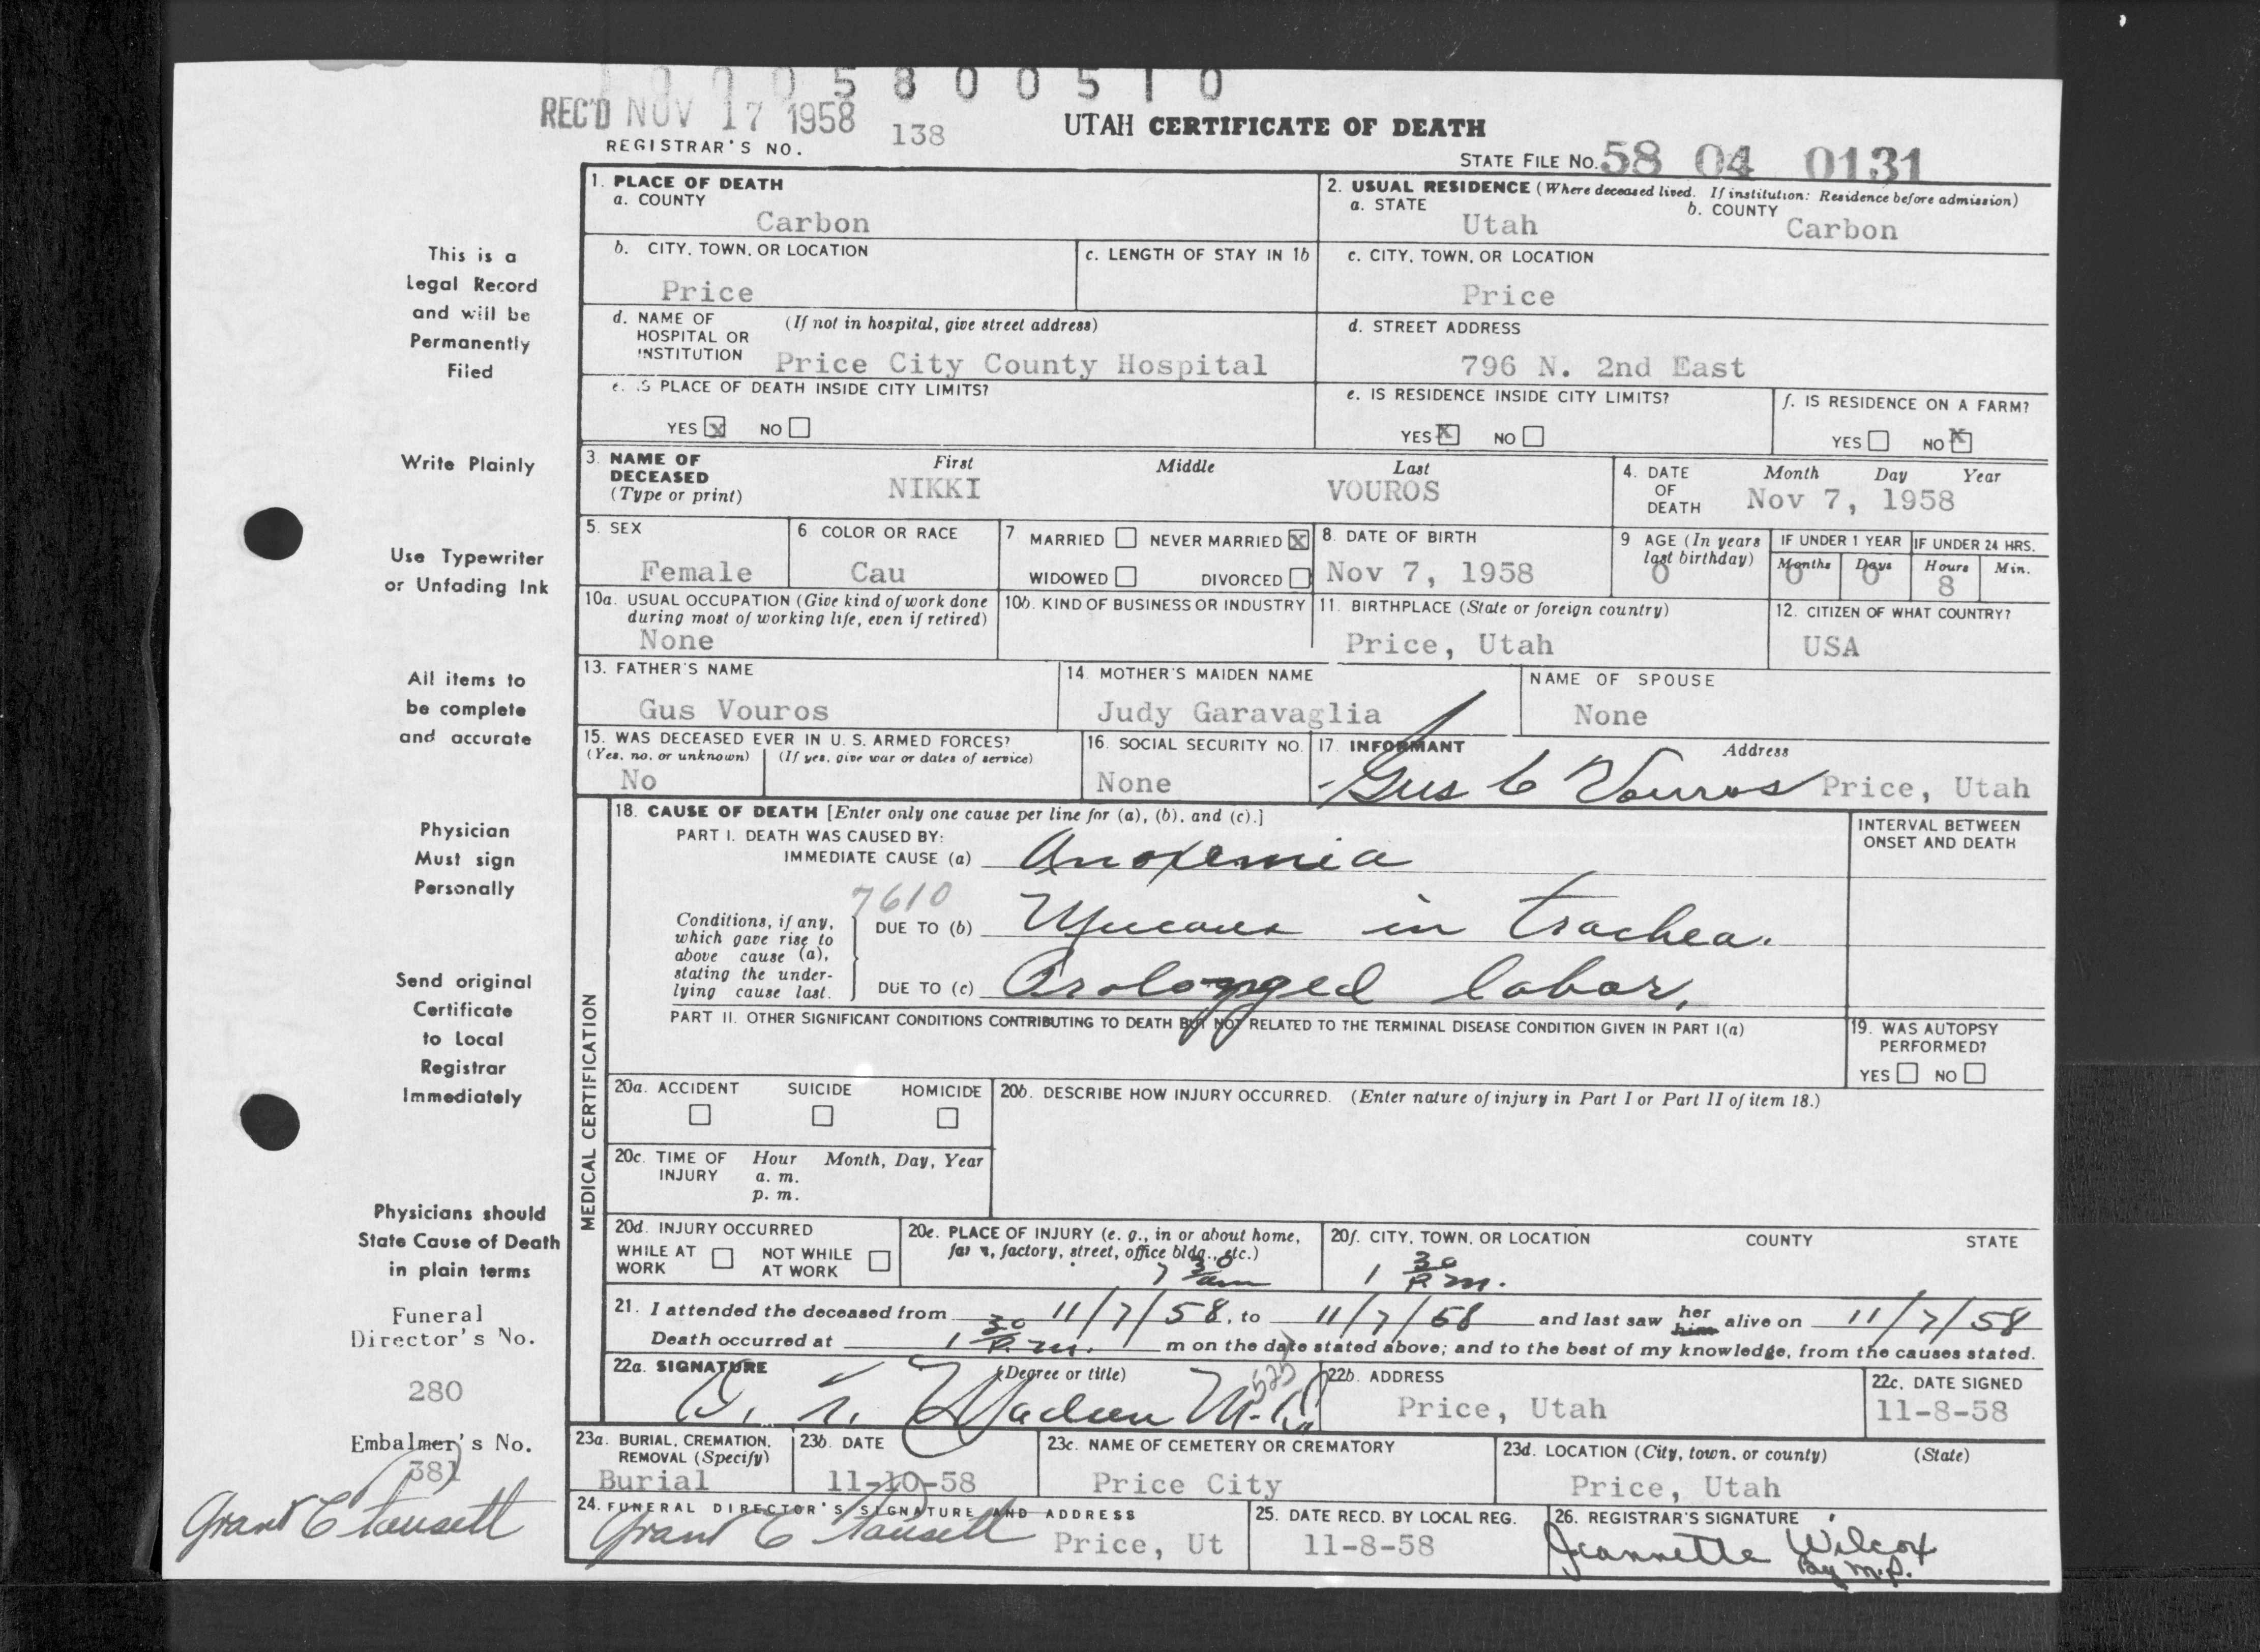 5 8 0 0 5 1 0
REC'D NOV 17 1958
138
REGISTRAR'S NO.
UTAH CERTIFICATE OF DEATH
STATE FILE NO. 58 04 0131
1. PLACE OF DEATH
a. COUNTY
Carbon
2. USUAL RESIDENCE (Where deceased lived. If institution: Residence before admission)
a. STATE
Utah
b. COUNTY
Carbon
b. CITY, TOWN, OR LOCATION
Price
c. LENGTH OF STAY IN 1b
c. CITY, TOWN, OR LOCATION
Price
d. NAME OF HOSPITAL OR INSTITUTION
(If not in hospital, give street address)
Price City County Hospital
d. STREET ADDRESS
796 N. 2nd East
e. IS PLACE OF DEATH INSIDE CITY LIMITS?
YES X NO
e. IS RESIDENCE INSIDE CITY LIMITS?
YES X NO
f. IS RESIDENCE ON A FARM?
YES NO X
3. NAME OF DECEASED (Type or print)
First Middle Last
NIKKI VOUROS
4. DATE OF DEATH
Month Day Year
Nov 7, 1958
5. SEX
Female
6 COLOR OR RACE
Cau
7 MARRIED NEVER MARRIED X
WIDOWED DIVORCED
8. DATE OF BIRTH
Nov 7, 1958
9 AGE (In years last birthday)
0
IF UNDER 1 YEAR
Months Days
0 0
IF UNDER 24 HRS.
Hours Min.
8
10a. USUAL OCCUPATION (Give kind of work done during most of working life, even if retired)
None
10b. KIND OF BUSINESS OR INDUSTRY
11. BIRTHPLACE (State or foreign country)
Price, Utah
12. CITIZEN OF WHAT COUNTRY?
USA
13. FATHER'S NAME
Gus Vouros
14. MOTHER'S MAIDEN NAME
Judy Garavaglia
NAME OF SPOUSE
None
15. WAS DECEASED EVER IN U. S. ARMED FORCES?
(Yes, no, or unknown) (If yes, give war or dates of service)
No
16. SOCIAL SECURITY NO.
None
17. INFORMANT Address
Gus C Vouros Price, Utah
MEDICAL CERTIFICATION
18. CAUSE OF DEATH [Enter only one cause per line for (a), (b), and (c).]
PART I. DEATH WAS CAUSED BY:
IMMEDIATE CAUSE (a) Anoxemia
INTERVAL BETWEEN ONSET AND DEATH
7610
Conditions, if any, which gave rise to above cause (a), stating the underlying cause last.
DUE TO (b) Mucous in trachea.
DUE TO (c) Prolonged labor.
PART II. OTHER SIGNIFICANT CONDITIONS CONTRIBUTING TO DEATH BUT NOT RELATED TO THE TERMINAL DISEASE CONDITION GIVEN IN PART I(a)
19. WAS AUTOPSY PERFORMED?
YES NO
20a. ACCIDENT SUICIDE HOMICIDE
20b. DESCRIBE HOW INJURY OCCURRED. (Enter nature of injury in Part I or Part II of item 18.)
20c. TIME OF INJURY
Hour Month, Day, Year
a. m.
p. m.
20d. INJURY OCCURRED
WHILE AT WORK NOT WHILE AT WORK
20e. PLACE OF INJURY (e. g., in or about home, factory, street, office bldg., etc.)
7 30 am
20f. CITY, TOWN, OR LOCATION COUNTY STATE
1 30 P.m.
21. I attended the deceased from 11/7/58, to 11/7/58 and last saw her him alive on 11/7/58
Death occurred at 1 30 P.m. m on the date stated above; and to the best of my knowledge, from the causes stated.
22a. SIGNATURE (Degree or title)
M.D.
525
22b. ADDRESS
Price, Utah
22c. DATE SIGNED
11-8-58
23a. BURIAL, CREMATION, REMOVAL (Specify)
Burial
23b. DATE
11-10-58
23c. NAME OF CEMETERY OR CREMATORY
Price City
23d. LOCATION (City, town, or county) (State)
Price, Utah
24. FUNERAL DIRECTOR'S SIGNATURE AND ADDRESS
Grant C Price, Ut
25. DATE RECD. BY LOCAL REG.
11-8-58
26. REGISTRAR'S SIGNATURE
Jeannette Wilcox
By M.P.
This is a
Legal Record
and will be
Permanently
Filed
Write Plainly
Use Typewriter
or Unfading Ink
All items to
be complete
and accurate
Physician
Must sign
Personally
Send original
Certificate
to Local
Registrar
Immediately
Physicians should
State Cause of Death
in plain terms
Funeral
Director's No.
280
Embalmer's No.
381
Grant C